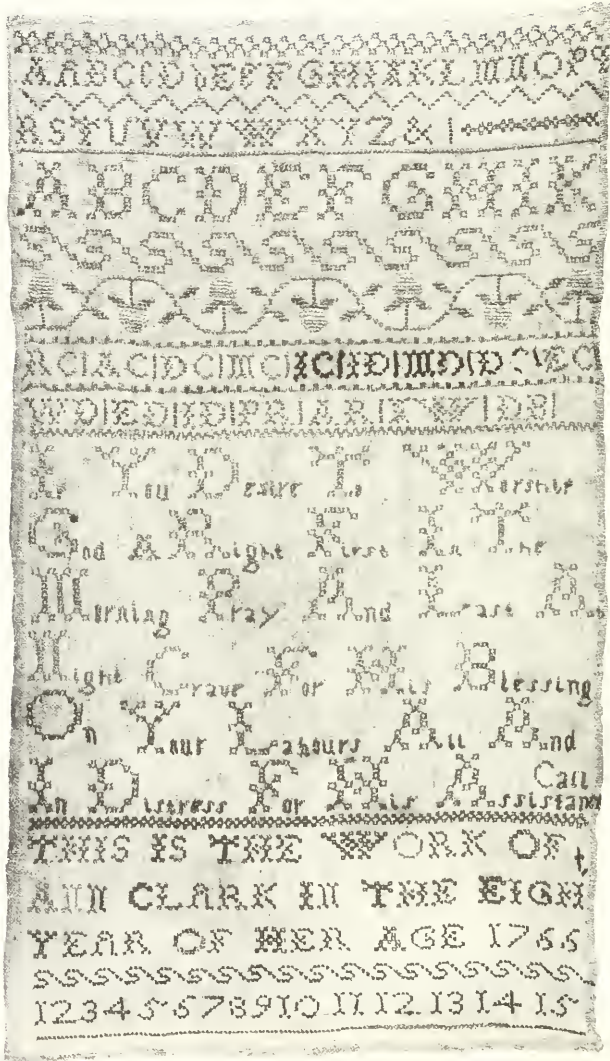 A A B C C D D E E F G H I K K L M N O P
R S T U V W W X Y Z & 1
A B C D E F G H I K
R C|A C|D C|M C|I C|I D|M D|D C|E C
W D|E D|I D|P R|A R|I W|D B|
If You Desire To Worship
God A Right First In The
Morning Pray And Last At
Night Crave For His Blessing
On Your Labours All And
In Distress For His Assistanc
Call
THIS IS THE WORK OF
ANN CLARK IN THE EIGHt
YEAR OF HER AGE 1766
1 2 3 4 5 6 7 8 9 10 11 12 13 14 15